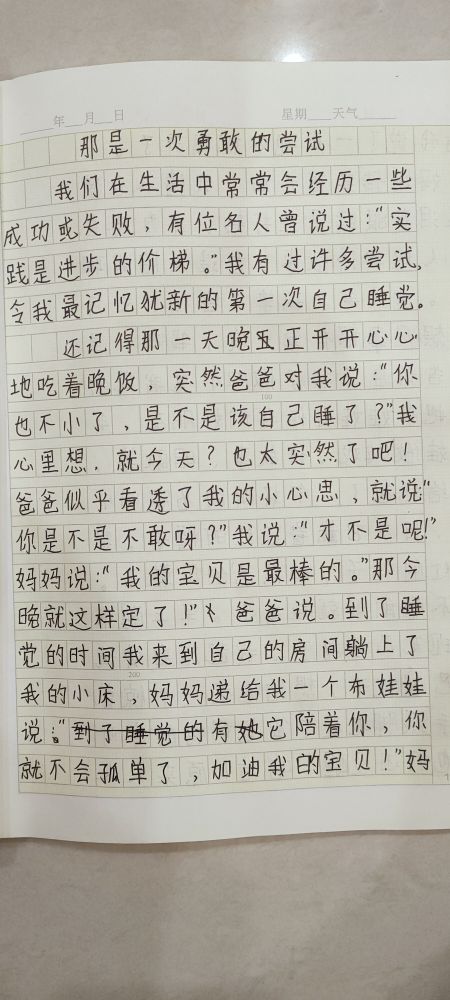 年 月 日 星期 天气
那是一次勇敢的尝试
我们在生活中常常会经历一些
成功或失败，有位名人曾说过：“实
践是进步的价梯。”我有过许多尝试，
令我最记忆犹新的第一次自己睡觉。
还记得那一天晚正开开心心
地吃着晚饭，突然爸爸对我说：“你
100
也不小了，是不是该自己睡了？”我
心里想，就今天？也太突然了吧！
爸爸似乎看透了我的小心思，就说“
你是不是不敢呀？”我说：“才不是呢！”
妈妈说：“我的宝贝是最棒的。”那今
晚就这样定了！”爸爸说。到了睡
觉的时间我来到自己的房间躺上了
200
我的小床，妈妈递给我一个布娃娃
说：“到了睡觉的有她它陪着你，你
就不会孤单了，加油我的宝贝！”妈